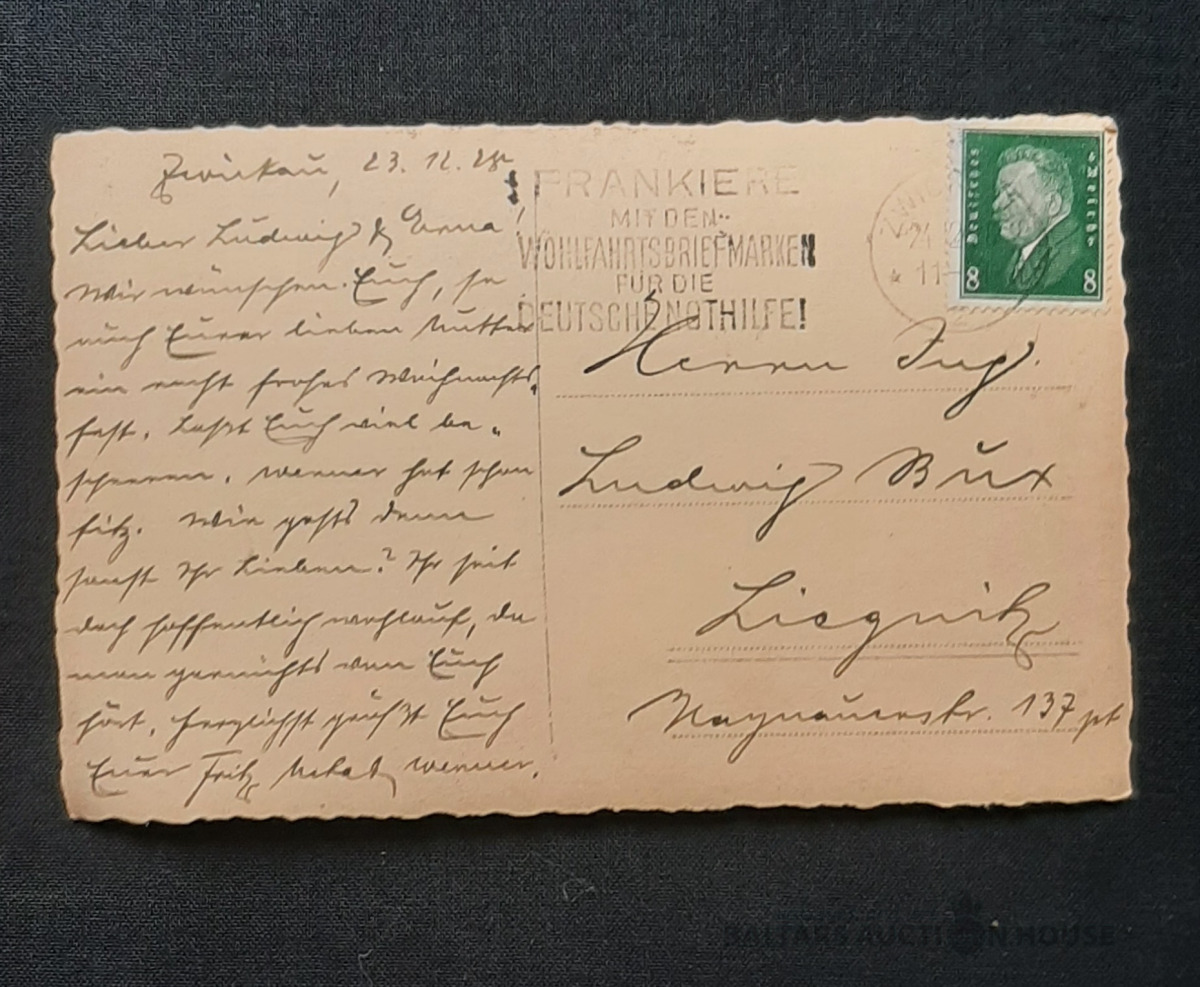 Zwickau, 23.12.28
Lieber Ludwig & Erna!
Wir wünschen Euch, so
auch Eurer lieben Mutter
ein recht frohes Weihnachts-
fest. Laßt Euch viel be-
scheeren. Werner hat schon
Wie gehts denn
sonst Ihr Lieben? Ihr seit
doch hoffentlich wohlauf, da
man garnichts von Euch
hört. Herzlichst grüßt Euch
Euer Fritz Werner.
FRANKIERE
MIT DEN
WOHLFAHRTSBRIEFMARKEN
FÜR DIE
DEUTSCHE NOTHILFE!
24
11-
Deutsches Reich
8 8
Herrn Ing.
Ludwig Bux
Liegnitz
Haynauerstr. 137 pt
BALTARS AUCTION HOUSE